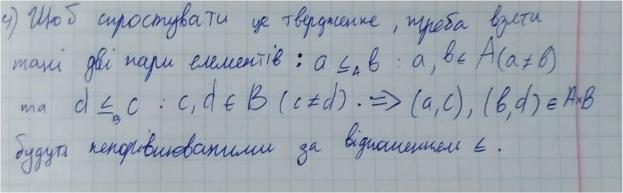 с) Щоб спростувати це твердження, треба взяти
такі дві пари елементів : a ≤_A b : a, b ∈ A (a ≠ b)
та d ≤_B c : c, d ∈ B (c ≠ d) . => (a, c), (b, d) ∈ A×B
будуть непорівнюваними за відношенням ≤ .